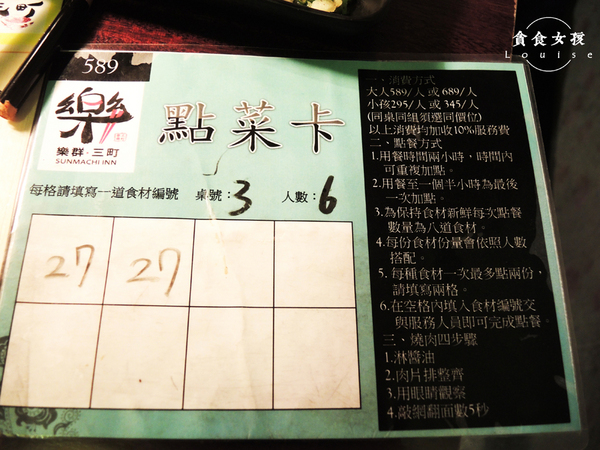 貪食女孩
Louise
589
樂
樂群·三町
SUNMACHI INN
點菜卡
每格請填寫一道食材編號 桌號:3 人數:6
27 27
一、消費方式
大人589/人 或 689/人
小孩295/人 或 345/人
(同桌同組須選同價位)
以上消費均加收10%服務費
二、點餐方式
1.用餐時間兩小時,時間內
可重複加點。
2.用餐至一個半小時為最後
一次加點。
3.為保持食材新鮮每次點餐
數量為八道食材。
4.每份食材份量會依照人數
搭配。
5.每種食材一次最多點兩份,
請填寫兩格。
6.在空格內填入食材編號交
與服務人員即可完成點餐。
三、燒肉四步驟
1.淋醬油
2.肉片排整齊
3.用眼睛觀察
4.敲網翻面數5秒